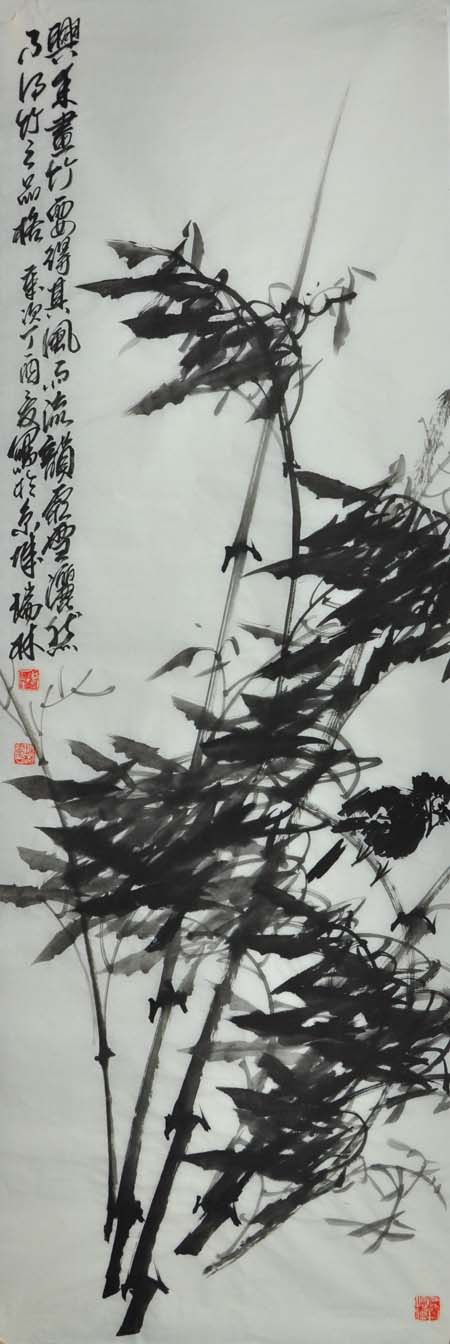 興来畫竹要得其風雨流韻霜雪灑然
乃得竹之品格 歲次丁酉夏寫於京城 瑞林